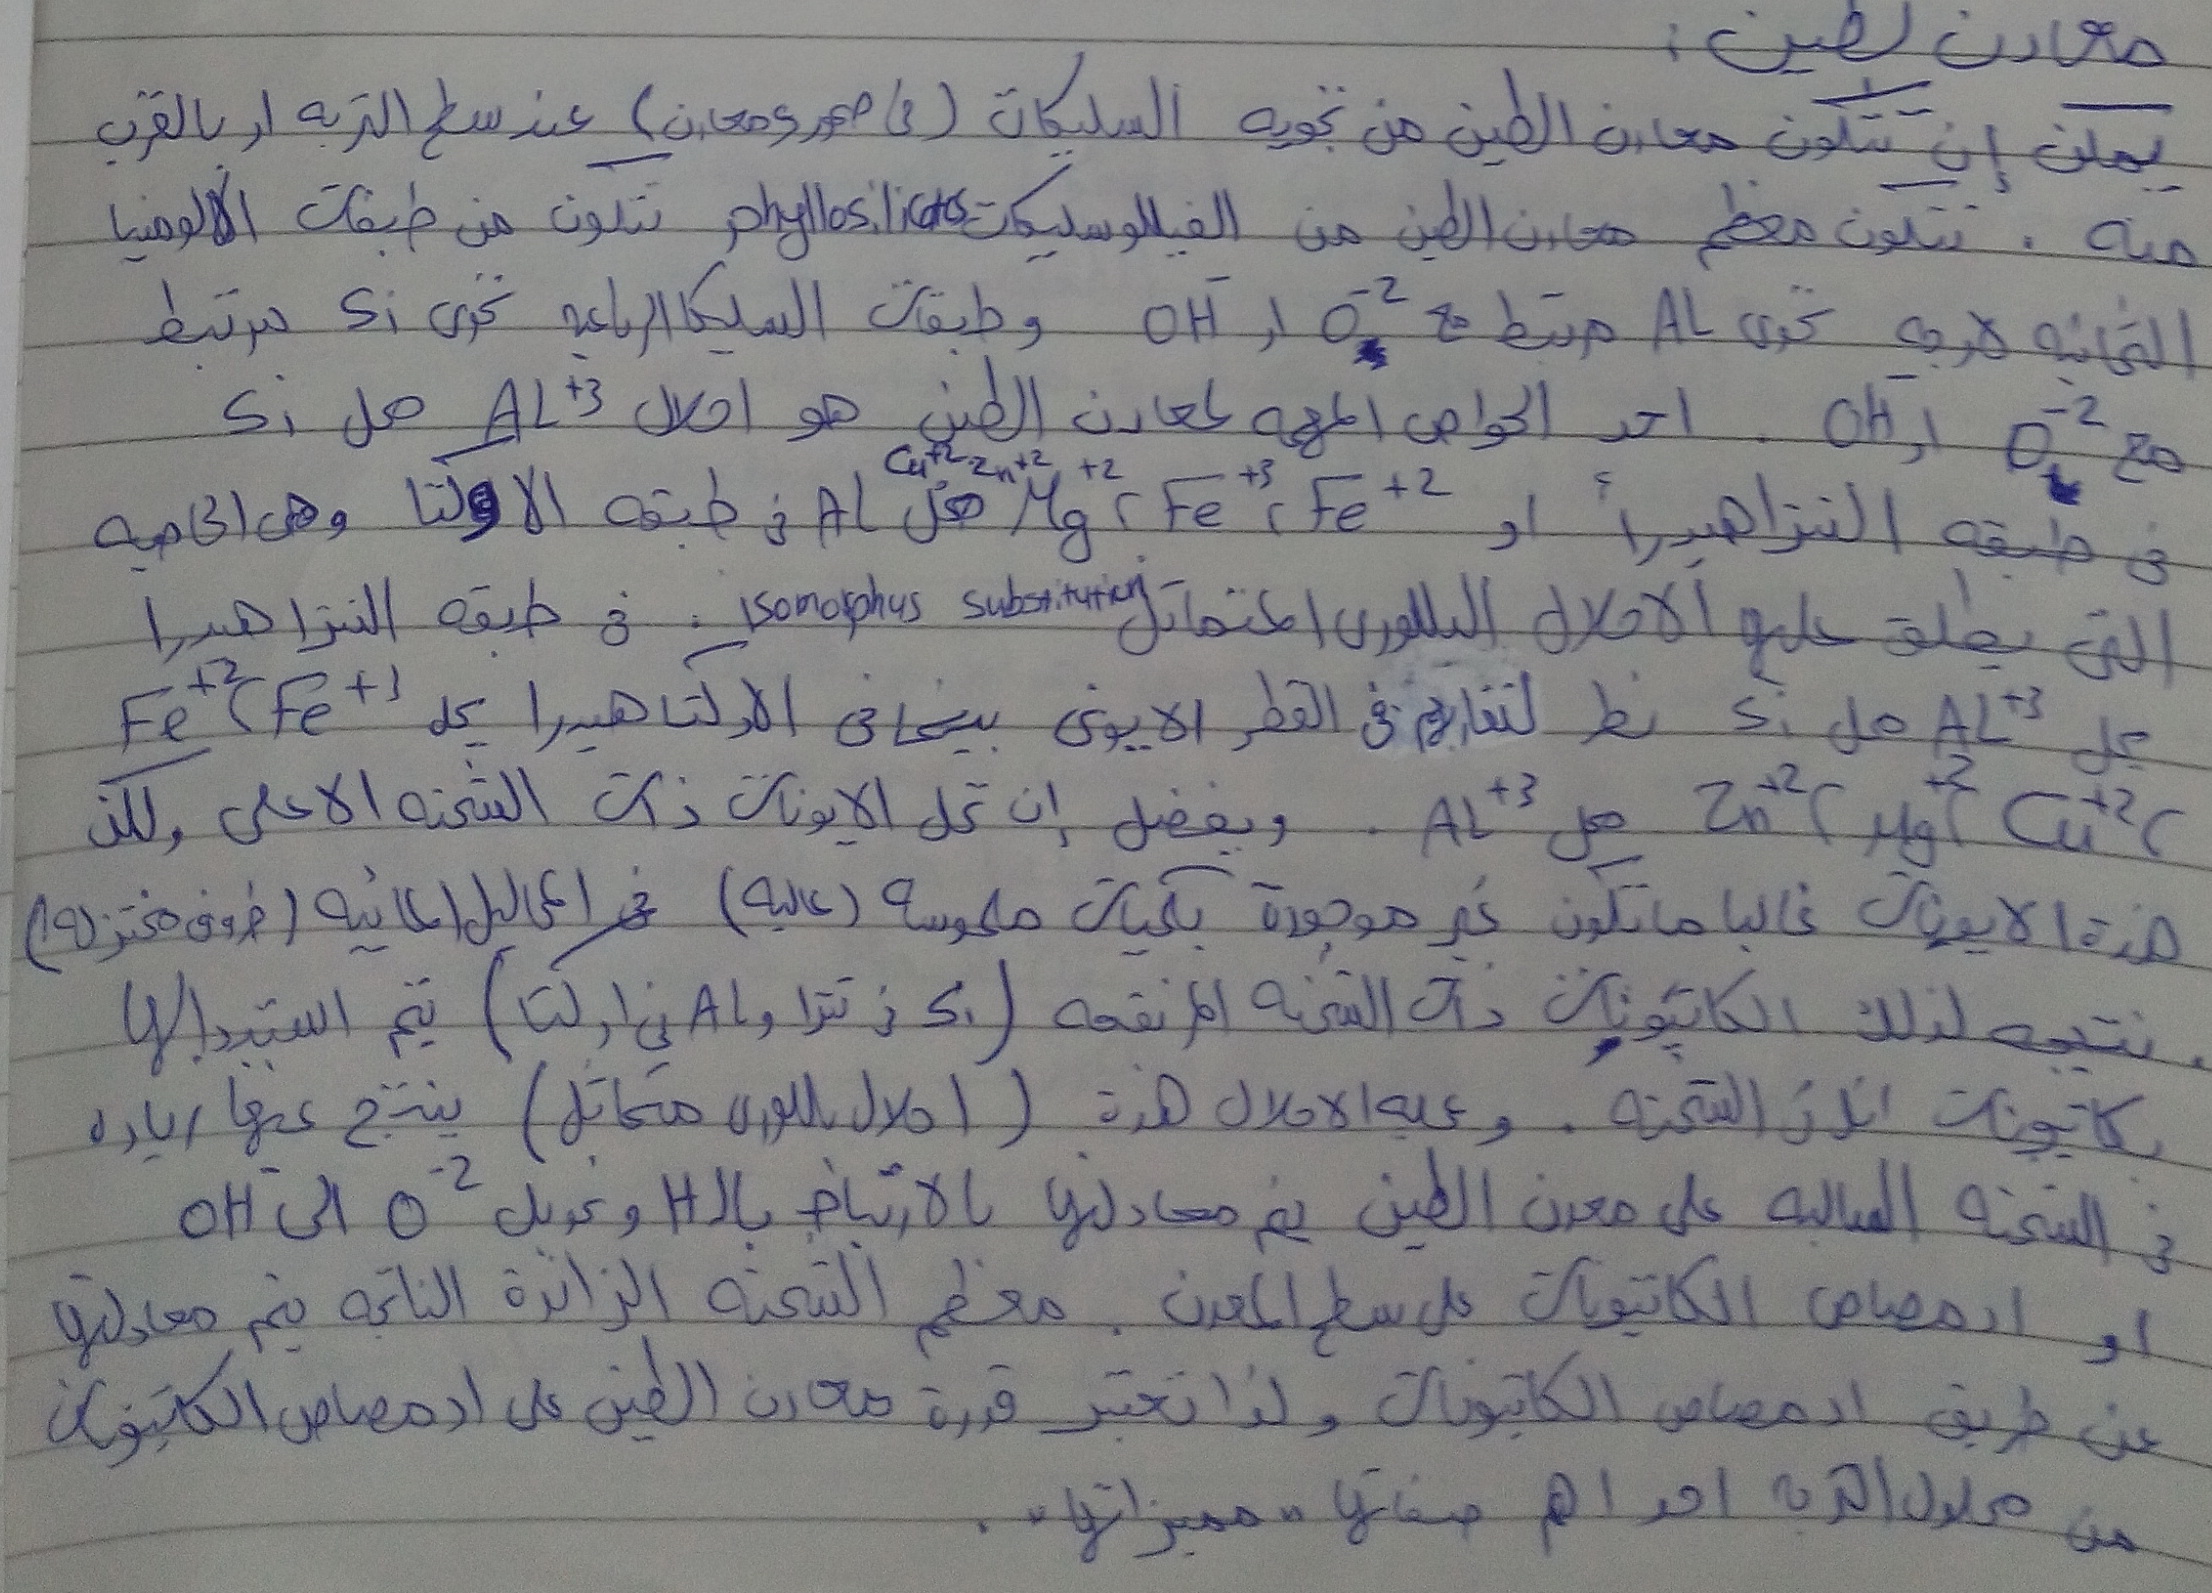 معادن لطين :
يمكن إن تتكون معادن الطين من تجويه السليكات (فى صخور ومعادن) عند سطح التربه او بالقرب
منه . تتكون معظم معادن الطين من الفيللوسليكات phyllosilicates تتكون من طبقات الألومنيا
الثمانيه لاوجه تحوى AL مرتبط مع O⁻² او OH⁻ وطبقات السليكا الرباعيه تحوى Si مرتبط
مع O⁻² او OH⁻ . احد الخواص المهمه لمعادن الطين هو احلال AL⁺³ محل Si
فى طبقه التتراهيدرا او Fe⁺² ، Fe⁺³ ، Mg⁺² Zn⁺² Cu⁺² محل Al فى طبقه الاوكتا وهى الخاصيه
التى يطلق عليها الاحلال البللورى المتماثل isomorphus substitution . فى طبقه التتراهيدرا
يحل AL⁺³ محل Si نظر لتقاربهم فى القطر الايونى بينما فى الاوكتاهيدرا يحل Fe⁺³ ، Fe⁺²
، Cu⁺² ، Mg⁺² ، Zn⁺² محل AL⁺³ . ويفضل إن تحل الايونات ذات الشحنه الاعلى ولكن
هذة الايونات غالبا ماتكون غير موجودة بكميات ملموسه (عاليه) فى المحاليل المائيه (ظروف مختزله)
. نتيجه لذلك الكاتيونات ذات الشحنه المرتفعه (Si فى تترا و AL في اوكتا) يتم استبدالها
بكاتيونات اقل فى الشحنه . وعمليه الاحلال هذة (احلال بللورى متماثل) ينتج عنها زياده
فى الشحنه السالبه على معدن الطين يتم معادلتها بالارتباط بالـ H وتحويل O⁻² الى OH⁻
او ادمصاص الكاتيونات على سطح المعدن . معظم الشحنه الزائدة الناتجه يتم معادلتها
عن طريق ادمصاص الكاتيونات ولذا تعتبر قدرة معادن الطين على ادمصاص الكاتيونات
من محلول التربه احد اهم صفاتها "مميزاتها" .